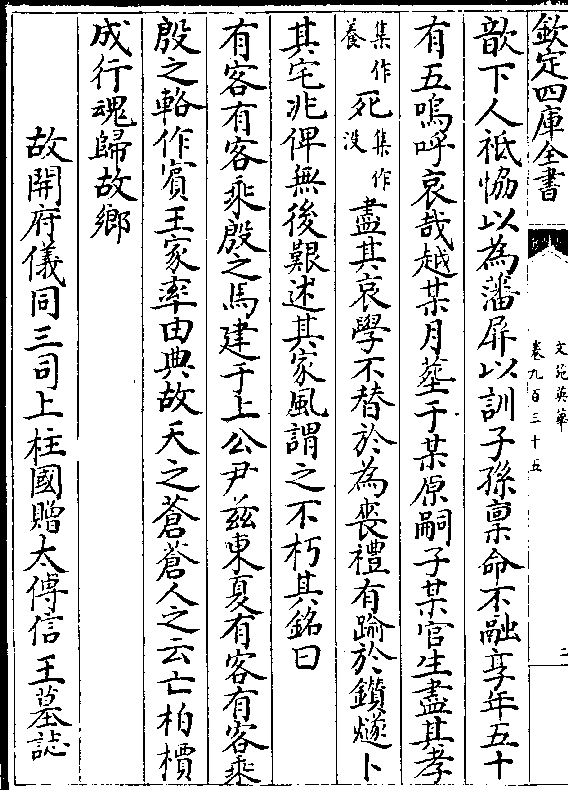 欽定四庫全書
文苑英華
卷九百三十五
二
歆下人祗恊以為藩屏以訓子孫禀命不融享年五十
有五嗚呼哀哉越某月葬于某原嗣子某官生盡其孝
集作養死集作没盡其哀學不替於為喪禮有踰於鑚燧卜
其宅兆俾無後艱述其家風謂之不朽其銘曰
有客有客乘殷之馬建于上公尹兹東夏有客有客乘
殷之輅作賓王家率由典故天之蒼蒼人之云亡柏檟
成行魂歸故鄉
故開府儀同三司上柱國贈太傅信王墓誌